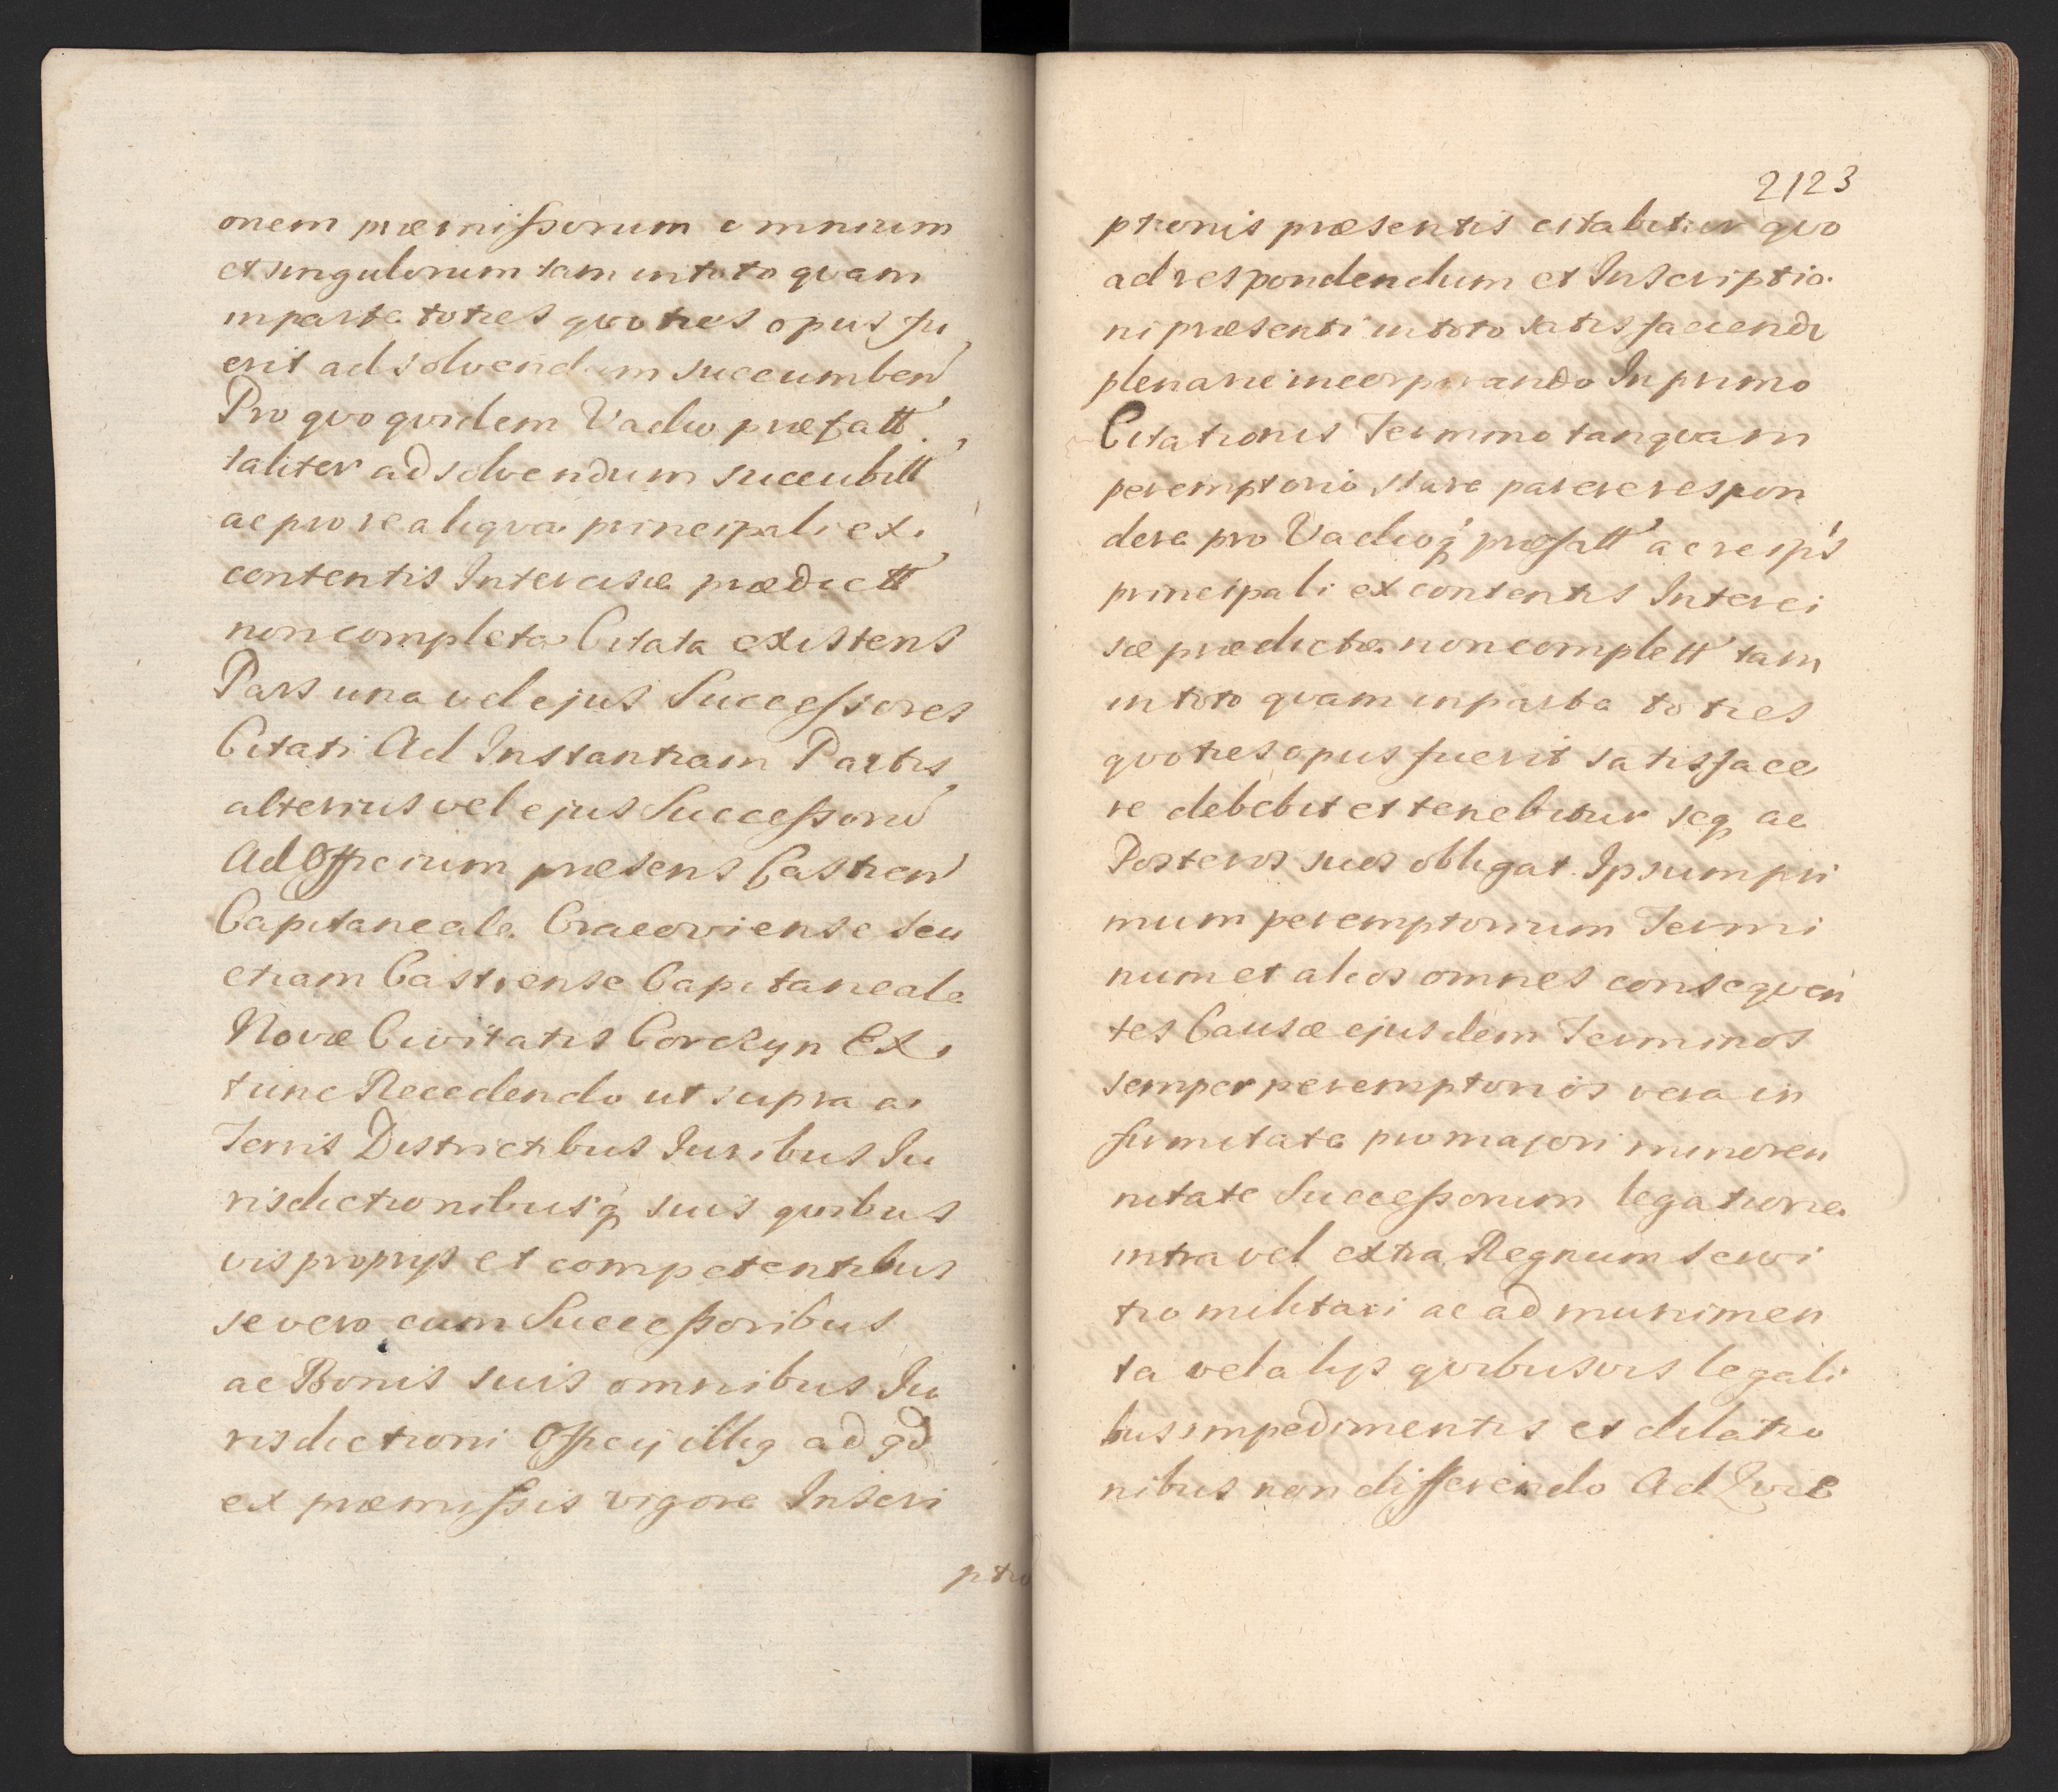 onem præmissorum omnium
et singulorum tam in toto quam
in parte toties quoties opus fu
erit ad solvendum succumben
Pro quo quidem Vadio præfatt
taliter ad solvendum succubitt
ac pro re aliqua principali ex
contentis Intercisæ prædictt
non completa Citata existens
Pars una vel ejus Successores
Citati Ad Instantiam Partis
alterius vel ejus Successoru
Ad Officium præsens Castren
Capitaneale Cracoviense seu
etiam Castrense Capitaneale
Novæ Civitatis Corczyn Ex
tunc Recedendo ut supra a
Terris Districtibus Iuribus Iu
risdictionibusq suis quibus
vis proprijs et competentibus
se vero cum Successoribus
ac Bonis suis omnibus Iu
risdictioni Officij illig ad qd
ex præmissis vigore Inscri
ptio
2123
ptionis præsentis citabitur quo
ad respondendum et Inscriptio
ni præsenti in toto satisfaciendi
plenarie incorporando In primo
Citationis Termino tanquam
peremptorio stare parere respon
dere pro Vadioq præfatt ac re ips
principali ex contentis Interci
sæ prædictæ non complett tam
in toto quam in parte toties
quoties opus fuerit satisface
re debebit et tenebitur seq ac
Posteros suos obligat Ipsum pri
mum peremptorium Termi
num et alios omnes consequen
tes Causæ ejusdem Terminos
semper peremptorios vera in
firmitate pro majori minoren
nitate Successorum legatione
intra vel extra Regnum servi
tio militari ac ad munimen
ta vel alijs quibusvis legali
bus impedimentis et dilatio
nibus non differendo Ad Quæ